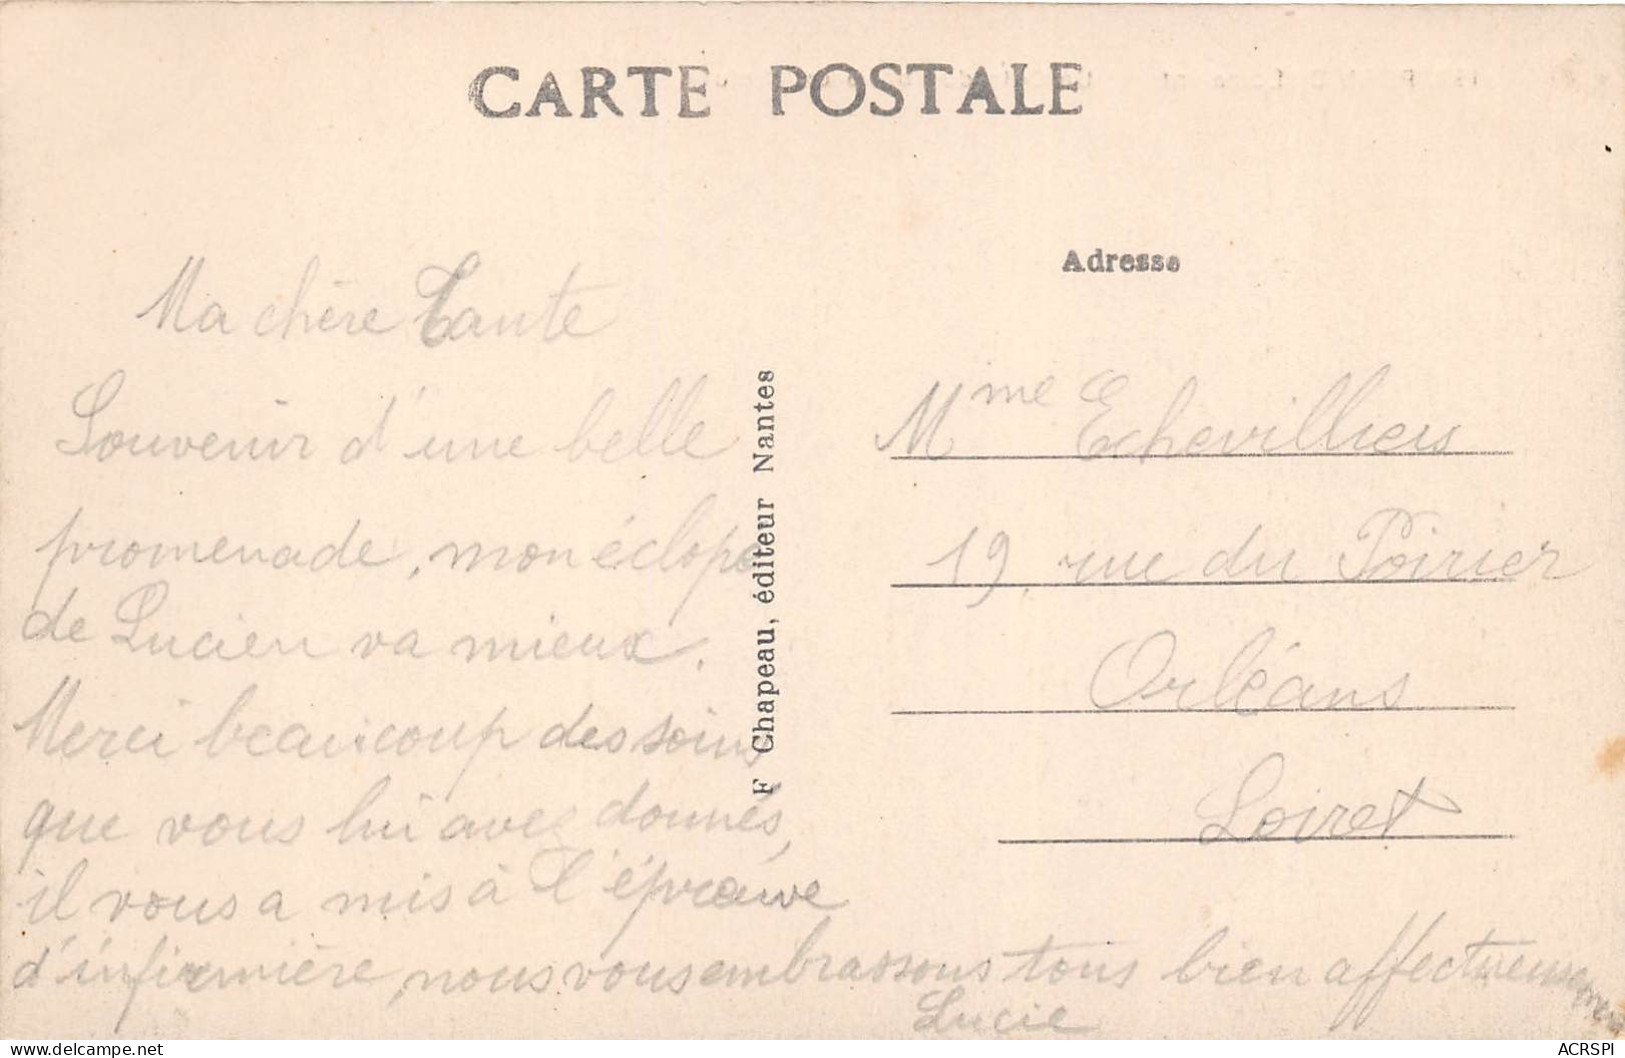 CARTE POSTALE
Adresse
Ma chère Tante
Souvenir d'une belle
promenade, mon éclopé
de Lucien va mieux.
Merci beaucoup des soins
que vous lui avez donnés,
il vous a mis à l'épreuve
d'infirmière, nous vous embrassons tous bien affectueusement
Lucie
F Chapeau, éditeur Nantes
Mme Echevilliers
19, rue du Poirier
Orléans
Loiret
ACRSPI